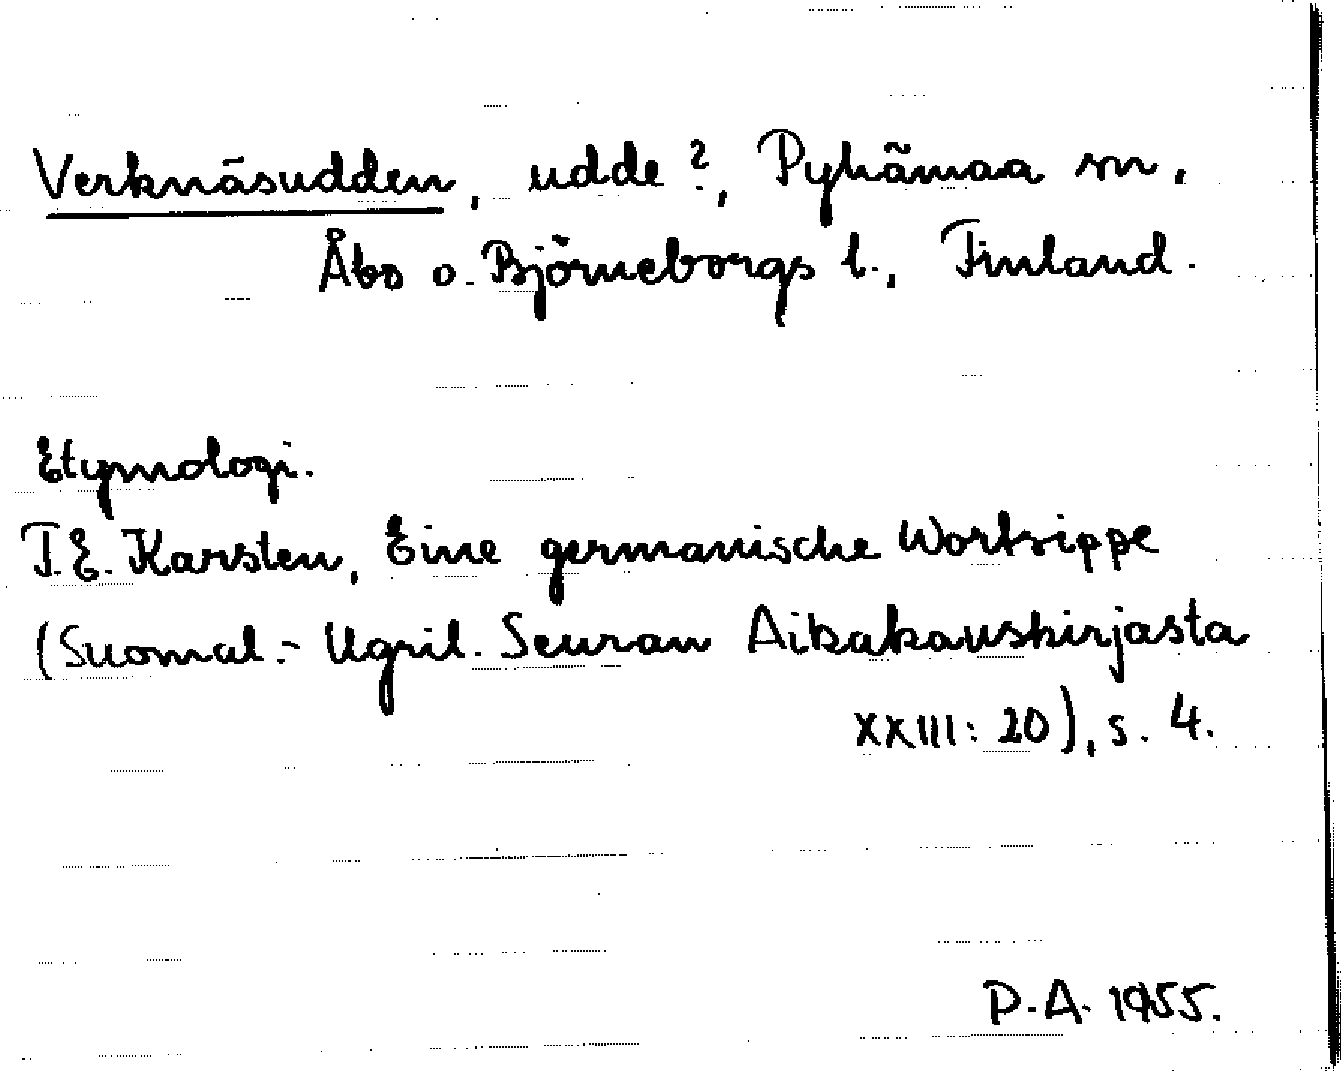 Verknäsudden, udde?, Pyhämaa sn,
Åbo o. Björneborgs l., Finland.
Etymologi.
T.E. Karsten, Eine germanische Wortsippe
(Suomal.-Ugril. Seuran Aikakauskirjasta
XXIII: 20), s. 4.
P.A. 1955.